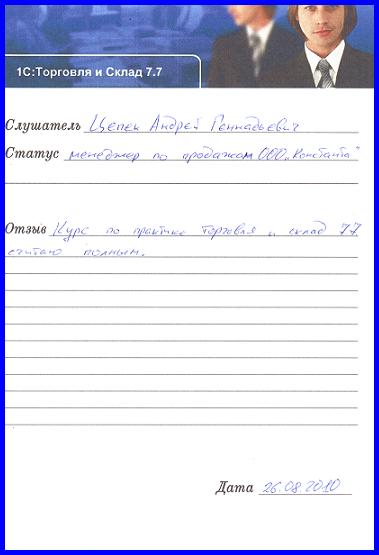 1С:Торговля и Склад 7.7
Слушатель Цепек Андрей Геннадьевич
Статус менеджер по продажам ООО „Константа"
Отзыв Курс по практике торговля и склад 7.7
считаю полным.
Дата 26.08.2010